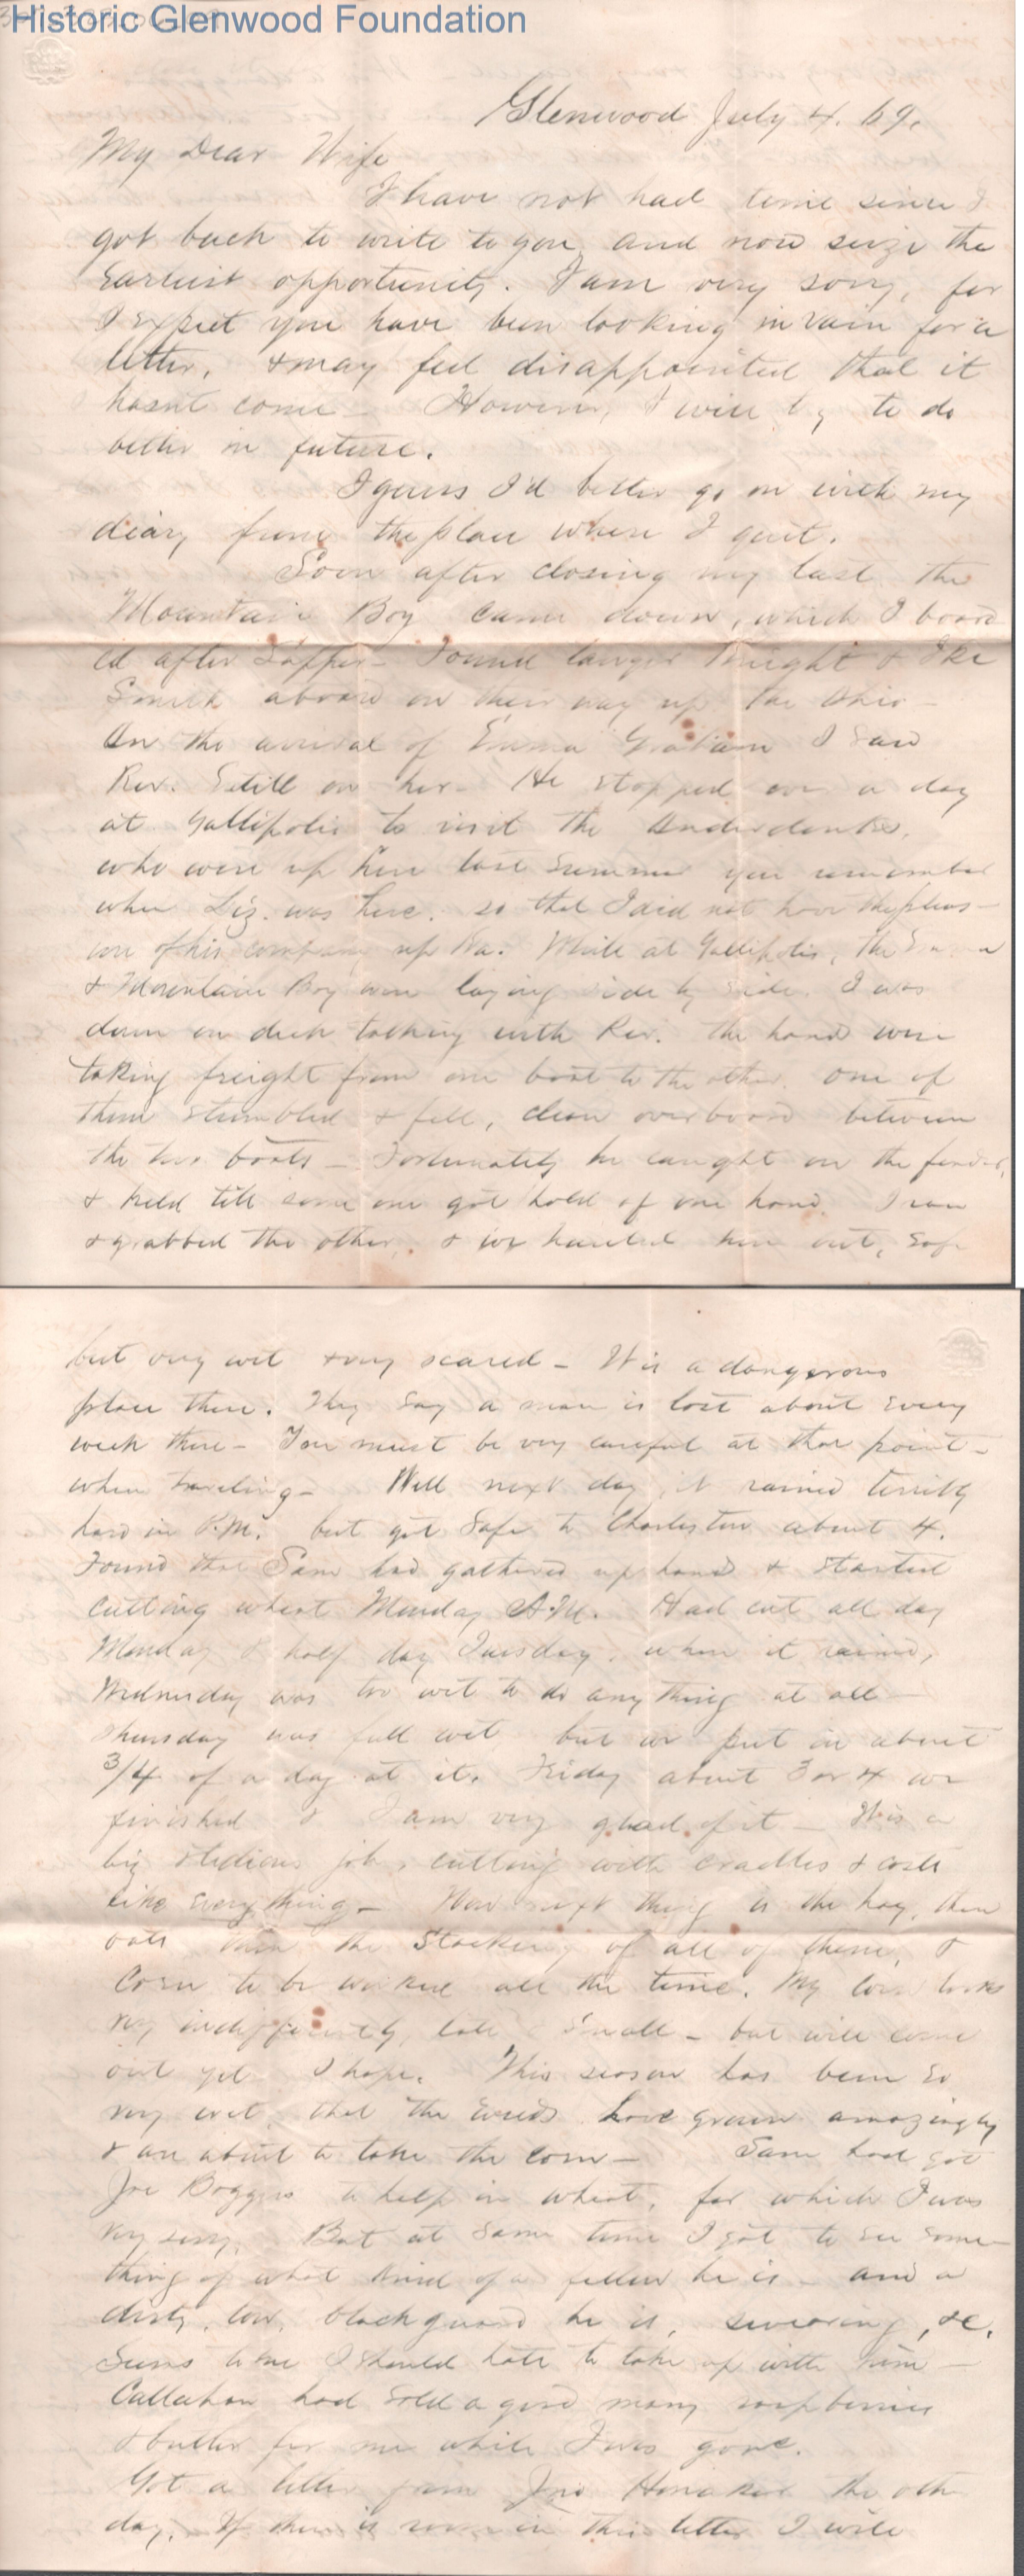 Historic Glenwood Foundation
Glenwood July 4. 69.
My Dear Wife
I have not had time since I
got back to write to you, and now seize the
earliest opportunity. I am very sorry, for
I expect you have been looking in vain for a
letter, & may feel disappointed that it
hasnt come - However, I will try to do
better in future.
I guess I'd better go on with my
diary from the place where I quit.
Soon after closing my last the
Mountain Boy came down, which I board
ed after Supper - Found Knight & Ike
Smith aboard on their way up the Ohio -
On the arrival of Emma Graham I saw
Rev. on her - He stopped over a day
at Gallipolis to visit the
who were up here last summer you remember
when Liz. was here. so that I did not have the pleas-
ure of his company up Ka. While at Gallipolis, the Emma
& Mountain Boy were laying side by side. I was
down on deck talking with Rev. The hands were
taking freight from one boat to the other. One of
them stumbled & fell, clear overboard between
the two boats - Fortunately he caught on the fender,
& held till some one got hold of one hand. I ran
& grabbed the other, & we hauled him out, safe
but very wet & very scared - It is a dangerous
place there. They say a man is lost about every
week there - You must be very careful at that point -
when traveling - Well next day it rained terribly
hard in P.M. but got safe to Charleston about 4.
Found that Sam had gathered up hands & started
cutting wheat Monday A.M. Had cut all day
Monday & half day Tuesday, when it rained,
Wednesday was too wet to do any thing at all -
Thursday was full wet but we put in about
3/4 of a day at it. Friday about 3 or 4 we
finished & I am very glad of it - It is a
big & tedious job, cutting with cradles & costs
like everything - Now next thing is the hay, then
oats then the stacking of all of them, &
corn to be worked all the time. My corn looks
very indifferently, late small - but will come
out yet I hope. This season has been so
very wet, that the weeds have grown amazingly
& are about to take the corn - Sam had got
Joe Boggess to help in wheat, for which I was
very sorry. But at same time I got to see some-
thing of what kind of a fellow he is - and a
dirty, low, blackguard he is, swearing, &c.
Seems to me I should hate to take up with him -
Callahan had sold a good many raspberries
& butter for me while I was gone.
Got a letter from the oth
day. If there is room in this letter I will